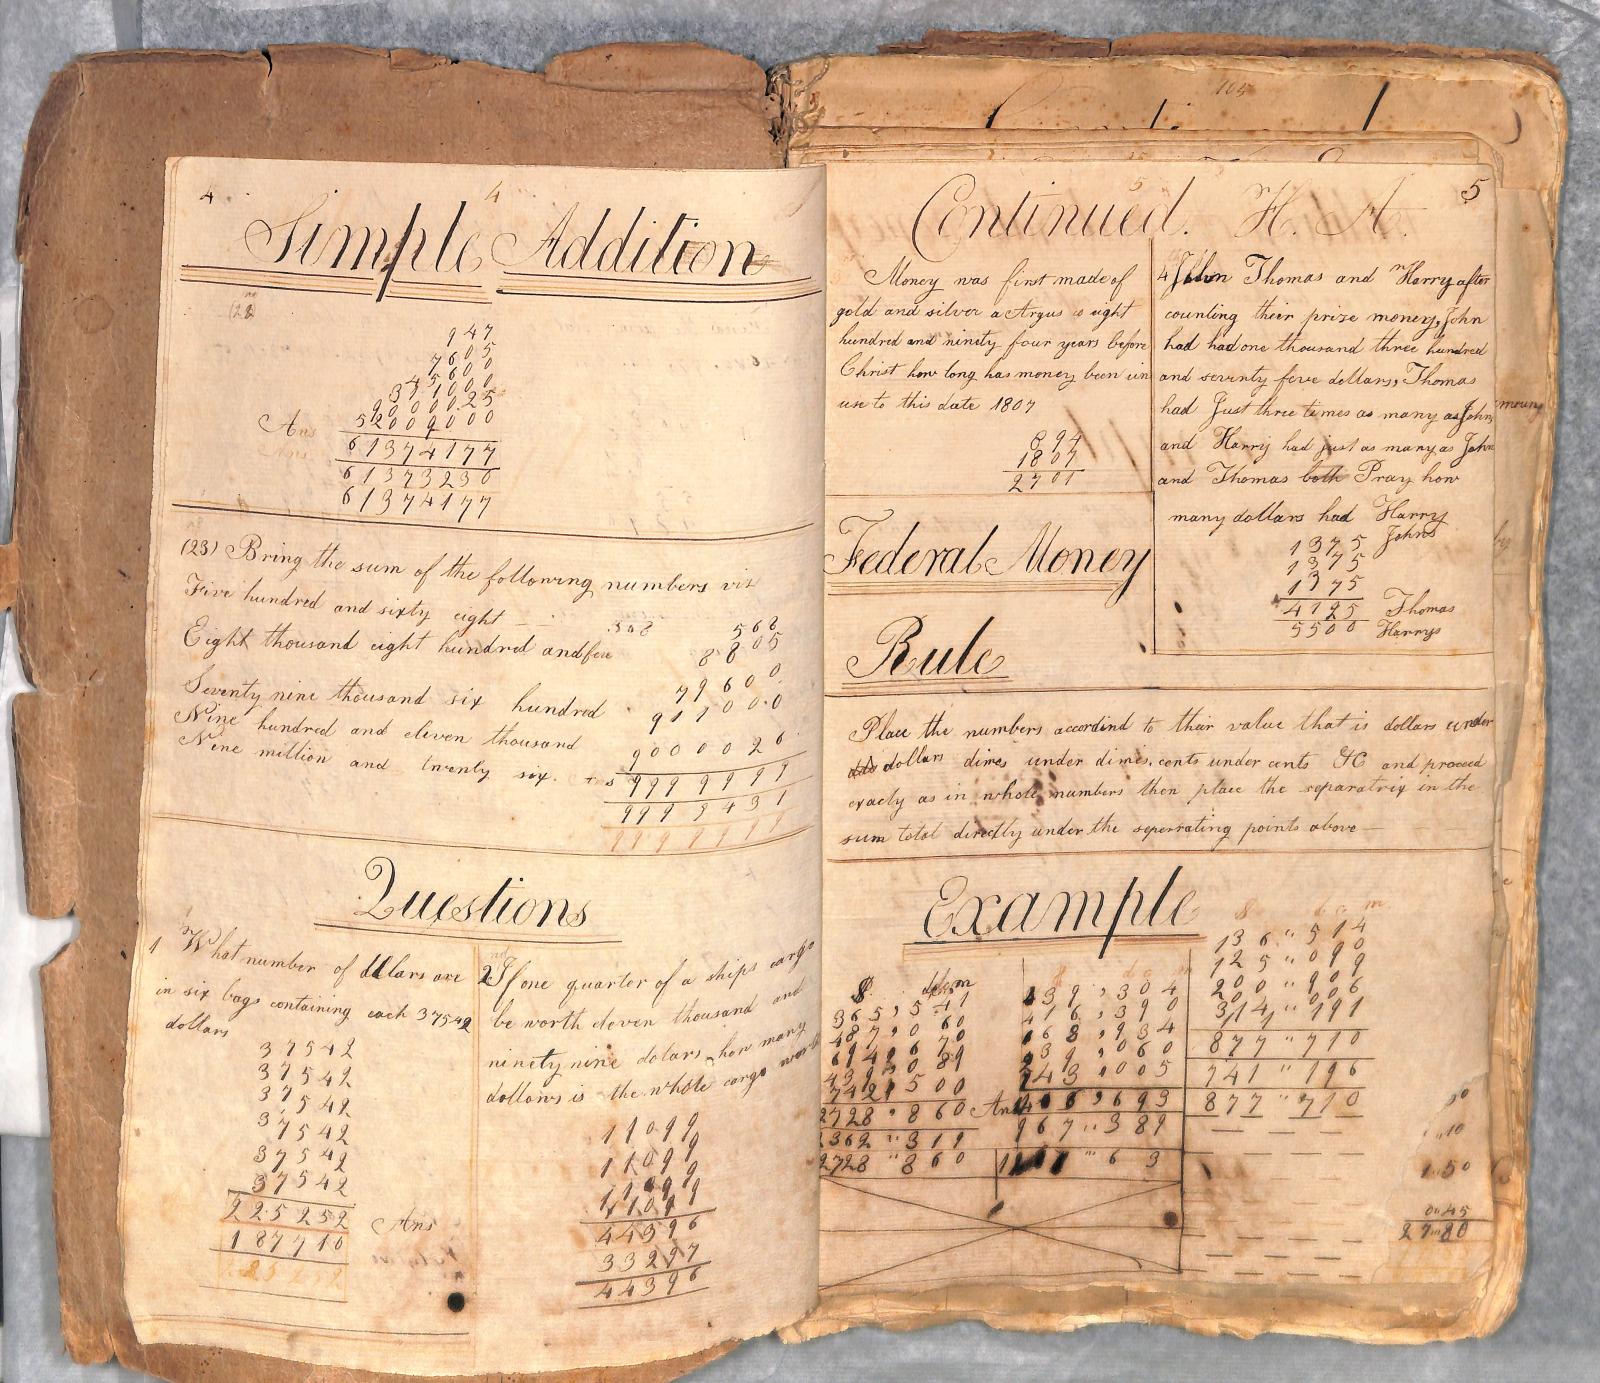 4
4
Simple Addition
947
7605
45600
371000
9000025
52009000
Ans
61374177
61373230
61374177
(23) Bring the sum of the following numbers viz
Five hundred and sixty eight 568
Eight thousand eight hundred and five 8805
Seventy nine thousand six hundred 79600
Nine hundred and eleven thousand 911000
Nine million and twenty six. 9000026
9999999
9999431
9999999
Questions
1 What number of dollars are
in six bags containing each 37542
dollars
37542
37542
37542
37542
37542
37542
225252 Ans
187710
2 If one quarter of a ships cargo
be worth eleven thousand and
ninety nine dolars, how many
dollars is the whole cargo worth
11099
11099
11099
11099
44396
33297
44396
105
5
5
Continued. H. A.
Money was first made of
gold and silver a Argus eight
hundred and ninety four years before
Christ how long has money been un
use to this date 1807
894
1807
2701
4 John Thomas and Harry after
counting their prize money, John
had had one thousand three hundred
and seventy five dollars, Thomas
had Just three times as many as John
and Harry had just as many as John
and Thomas both Pray how
many dollars had Harry
1375 Johns
1375
1375
4125 Thomas
5500 Harrys
Federal Money
Rule
Place the numbers accordind to thair value that is dollars under
dollars dimes under dimes, cents under cents &C and proceed
exacly as in whole numbers then place the separatrix in the
sum total directly under the seperrating points above
Example
$ dcm
365,541
487,060
2728,860 Ans
2362"319
2728"860
$ d c m
139,304
416,390
168,934
239,060
143,005
967"389
$ d c m
136"514
125"099
200"906
314"191
877"710
741"196
877"710
1.50
0.45
27.80